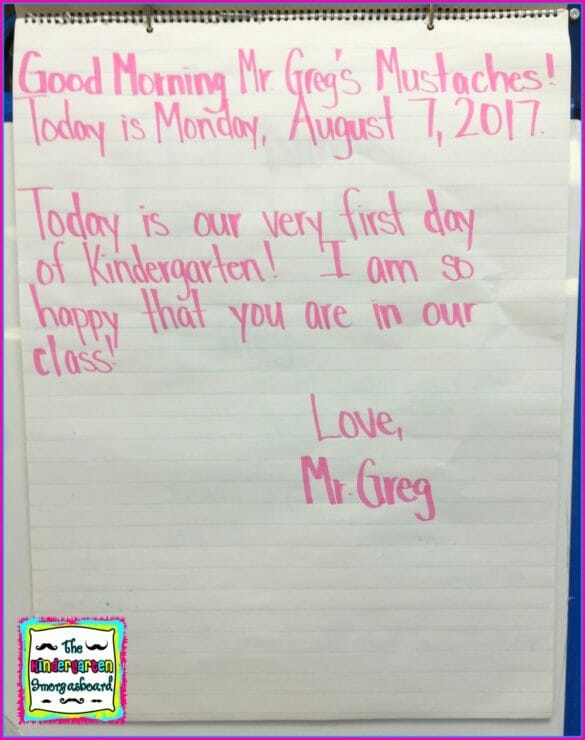 Good Morning Mr. Greg's Mustaches!
Today is Monday, August 7, 2017.
Today is our very first day
of Kindergarten! I am so
happy that you are in our
class!
Love,
Mr. Greg
The
Kindergarten
Smorgasboard